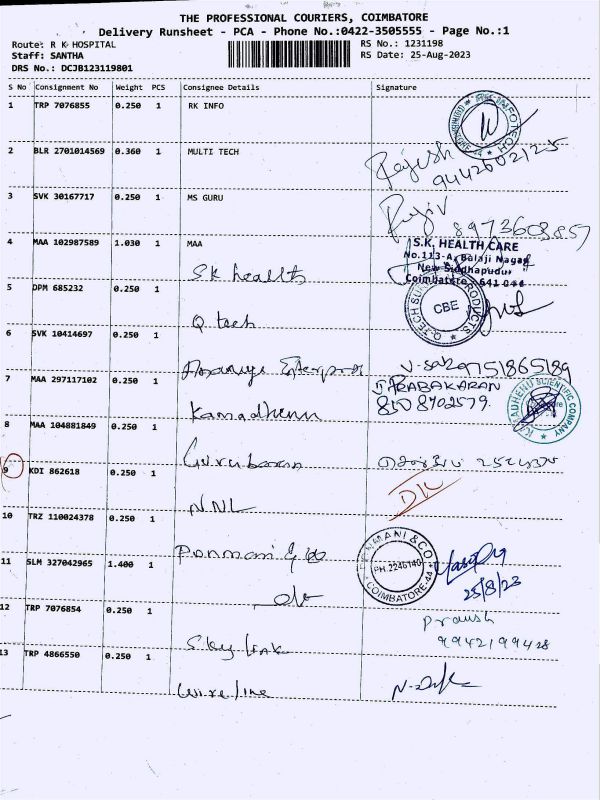 THE PROFESSIONAL COURIERS, COIMBATORE
Delivery Runsheet - PCA - Phone No.:0422-3505555 - Page No.:1
Route: R K HOSPITAL RS No.: 1231198
Staff: SANTHA RS Date: 25-Aug-2023
DRS No.: DCJB123119801
S No Consignment No Weight PCS Consignee Details Signature
1 TRP 7076855 0.250 1 RK INFO
2 BLR 2701014569 0.360 1 MULTI TECH Rajesh
9442602125
3 SVK 30167717 0.250 1 MS GURU Rajiv
8973603857
4 MAA 102987589 1.030 1 MAA
S.K. HEALTH CARE
No.113-A, Balaji Nagar
New Siddhapudur
Coimbatore - 641 044
SK health
5 DPM 685232 0.250 1
Q tech
CBE
6 SVK 10414697 0.250 1
Enterprises 9751865189
7 MAA 297117102 0.250 1 PRABAKARAN
Kamadhenu
KAMADHENU SCIENTIFIC COMPANY
8 MAA 104881849 0.250 1
Gurubaran
9 KDI 862618 0.250 1
NNL
10 TRZ 110024378 0.250 1
Ponmani & co
PONMANI & CO.
PH:2246140
COIMBATORE-44
11 SLM 327042965 1.400 1
25/8/23
do
12 TRP 7076854 0.250 1
9942199428
Sky link
13 TRP 4866550 0.250 1
Wireline